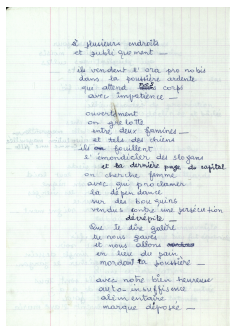 à plusieurs endroits
et publiquement —
ils vendent l'ora pro nobis
dans la poussière ardente
qui attend corps
avec impatience —
ouvertement
on grelotte
entre deux famines —
et tels des chiens
ils fouillent
l'emondicier des slogans
et la dernière page du capital
on cherche femme
avec qui proclamer
la dépendance
sur des bouquins
vendus contre une persécution
décrépite —
Que le dise galère
tu nous gaves
et nous allons
en lieu du pain
mordant ta poussière —
avec notre bien heureuse
auto-insuffisance
alimentaire
marque déposée —